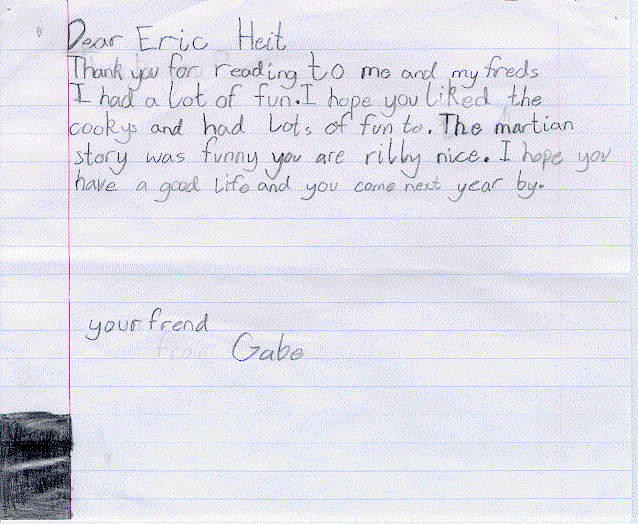 Dear Eric Heit
Thank you for reading to me and my freds
I had a lot of fun. I hope you liked the
cookys and had Lots of fun to. The martian
story was funny you are rilly nice. I hope you
have a good life and you come next year by.
your frend
from Gabe